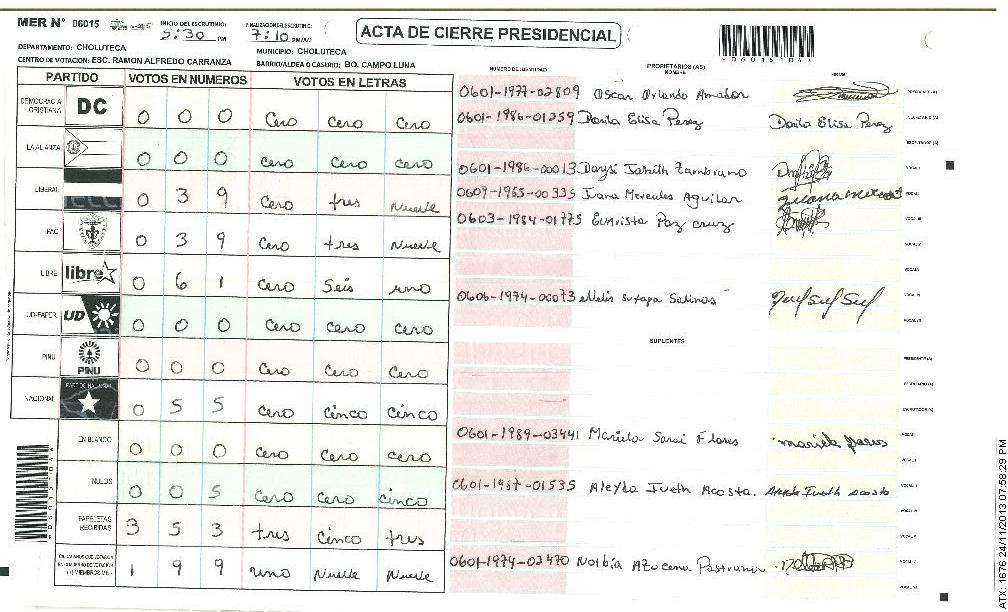 MER N° 06015
INICIO DEL ESCRUTINIO: 5:30 PM
FINALIZACION DEL ESCRUTINIO: 7:10 PM/AM
ACTA DE CIERRE PRESIDENCIAL
DEPARTAMENTO: CHOLUTECA
MUNICIPIO: CHOLUTECA
CENTRO DE VOTACION: ESC. RAMON ALFREDO CARRANZA
BARRIO/ALDEA O CASERIO: BO. CAMPO LUNA
PARTIDO VOTOS EN NUMEROS VOTOS EN LETRAS
DEMOCRACIA CRISTIANA DC 0 0 0 Cero cero cero
LA ALIANZA 0 0 0 cero cero cero
LIBERAL 0 3 9 cero tres Nueve
PAC 0 3 9 cero tres Nueve
LIBRE libre 0 6 1 cero Seis uno
UD-FAPER UD 0 0 0 Cero cero cero
PINU PINU 0 0 0 cero cero cero
NACIONAL PARTIDO NACIONAL 0 5 5 cero cinco cinco
EN BLANCO 0 0 0 cero cero cero
NULOS 0 0 5 cero cero cinco
PAPELETAS RECIBIDAS 3 5 3 tres cinco tres
1 9 9 uno Nueve Nueve
NUMERO DE IDENTIDAD
PROPIETARIOS (AS) NOMBRE
FIRMA
0601-1977-02809 Oscar Orlando Amador PRESIDENTE (A)
0601-1986-01259 Dorila Elisa Perez Dorila Elisa Perez SECRETARIO (A)
ESCRUTADOR (A)
0601-1986-00013 Daysi Zambrano VOCAL I
0609-1965-00335 Juana Mercedes Aguilar
0603-1984-01775 Evarista Paz cruz
VOCAL IV
VOCAL V
0606-1974-00073 Nelis Sutapa Salinas
SUPLENTES
PRESIDENTE (A)
SECRETARIO (A)
ESCRUTADOR (A)
0601-1989-03441 Mariela Sarai Flores mariela flores VOCAL I
0601-1967-01535 Aleyda Iveth Acosta. Aleyda Iveth Acosta
0601-1974-02470 Norbia Azucena Pastrana
ATX: 1676 24/11/2013 07:58:29 PM